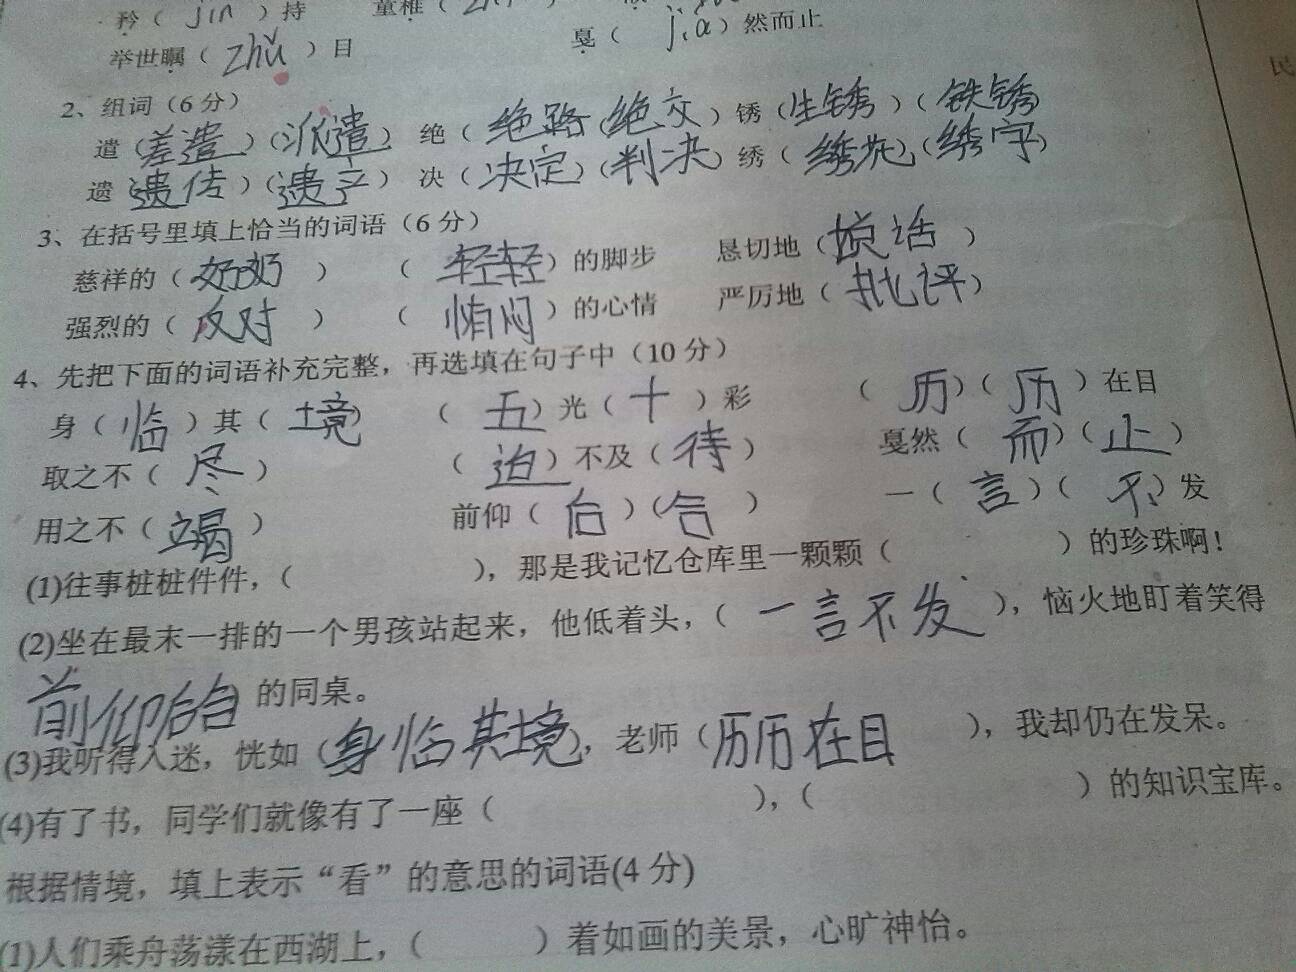 矜（jīn）持　童稚（zhì
举世瞩（zhǔ）目　戛（jiá）然而止
2、组词（6分）
遣（差遣）（派遣）　绝（绝路）（绝交）锈（生锈）（铁锈）
遗（遗传）（遗产）　决（决定）（判决）绣（绣花）（绣字）
3、在括号里填上恰当的词语（6分）
慈祥的（奶奶）　（轻轻）的脚步　恳切地（说话）
强烈的（反对）　（郁闷）的心情　严厉地（批评）
4、先把下面的词语补充完整，再选填在句子中（10分）
身（临）其（境）　（五）光（十）彩　（历）（历）在目
取之不（尽）　（迫）不及（待）　戛然（而）（止）
用之不（竭）　前仰（后）（合）　一（言）（不）发
(1)往事桩桩件件，（　），那是我记忆仓库里一颗颗（　）的珍珠啊！
(2)坐在最末一排的一个男孩站起来，他低着头，（一言不发），恼火地盯着笑得
前仰后合的同桌。
(3)我听得入迷，恍如（身临其境），老师（历历在目），我却仍在发呆。
(4)有了书，同学们就像有了一座（　），（　）的知识宝库。
根据情境，填上表示“看”的意思的词语(4分)
(1)人们乘舟荡漾在西湖上，（　）着如画的美景，心旷神怡。